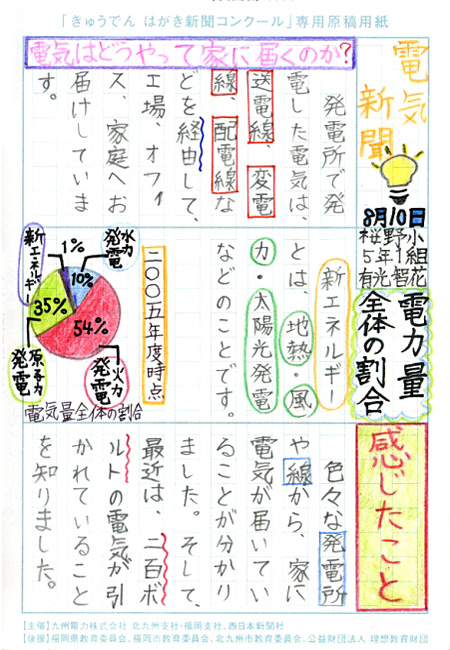 「きゅうでん はがき新聞コンクール」専用原稿用紙
電気
新聞
8月10日
桜野小
5年1組
有光智花
電気はどうやって家に届くのか?
発電所で発
電した電気は、
送電線、変電
線、配電線な
どを経由して、
工場、オフィ
ス、家庭へお
届けしていま
す。
電力量
全体の割合
新エネルギー
とは、地熱・風
力・太陽光発電
などのことです。
二〇〇五年度時点
水力
発電
10%
火力
発電
54%
原子力
発電
35%
新エネルギー
1%
電気量全体の割合
感じたこと
色々な発電所
や線から、家に
電気が届いてい
ることが分かり
ました。そして、
最近は、二百ボ
ルトの電気が引
かれていること
を知りました。
【主催】九州電力株式会社 北九州支社・福岡支社、西日本新聞社
【後援】福岡県教育委員会、福岡市教育委員会、北九州市教育委員会、公益財団法人 理想教育財団